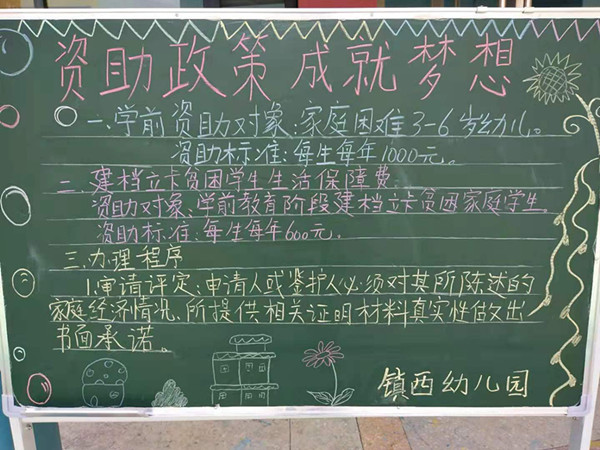 资助政策 成就梦想
一、学前资助对象：家庭困难3-6岁幼儿。
资助标准：每生每年1000元。
二、建档立卡贫困学生生活保障费：
资助对象：学前教育阶段建档立卡贫困家庭学生。
资助标准：每生每年600元。
三、办理程序
1.申请评定：申请人或监护人必须对其所陈述的
家庭经济情况、所提供相关证明材料真实性做出
书面承诺。
镇西幼儿园